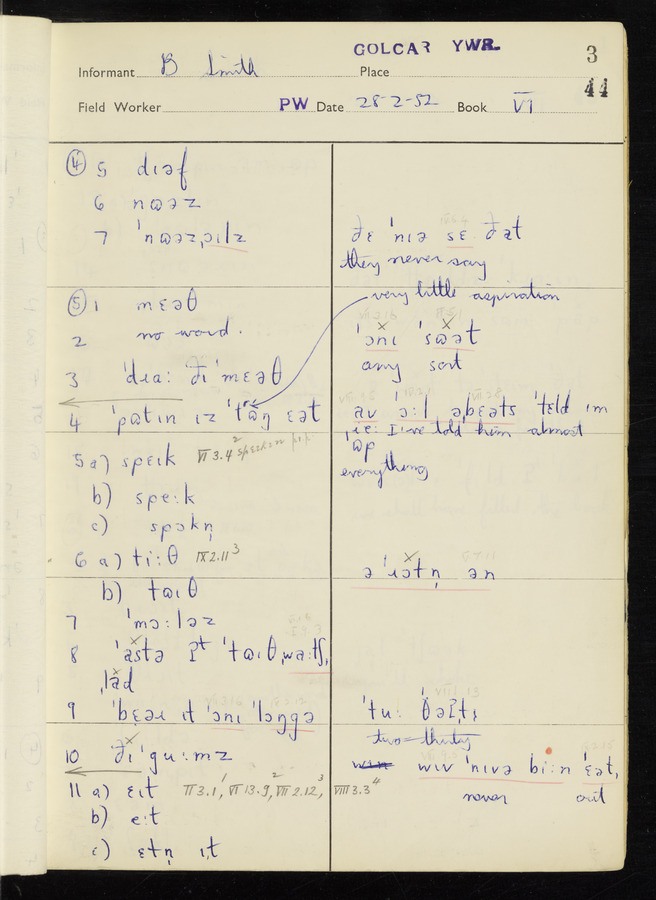 GOLCAR YWR.
3
44
Informant B Smith Place
Field Worker PW Date 28-2-52 Book VI
④ 5 dɪəf
6 nɷəz
7 ˈnɷəzˌɔɪlz
⑤ 1 mɛəθ
2 no word.
3 ˈdɪaː ðɪ ˈmɛəθ
4 ˈpɷtɪn ɪz ˈtɷŋ ɛət
5 a) spɛɪk VI 3.4²
b) speːk
c) spɔkn̩
6 a) tiːθ IX 2.11³
b) tɷɪθ
7 ˈmɔːləz
8 ˈastə ɪt ˈtɷɪθˌwaːtʃ,
ˌlad
9 ˈbɛəɪ ɪt ˈɔnɪ ˈlɔŋgə
10 ðɪ ˈguːmz
11 a) ɛɪt II 3.1¹, VI 13.9, VII 2.12³, VIII 3.3⁴
b) eːt
c) ɛtn̩ ɪt
ðɛ ˈnɪə sɛ ðət
they never say
very little aspiration
ˈɔnɪ ˈsɷət
any sort
av ˈɔːl əbɛəts ˈtɛld ɪm
ie: I've told him almost
ˈɷp
everything
ə ˈɪɔtn̩ ən
ˈtuː
two-thirty
wɪv ˈnɪvə biːn ˈɛət,
never out